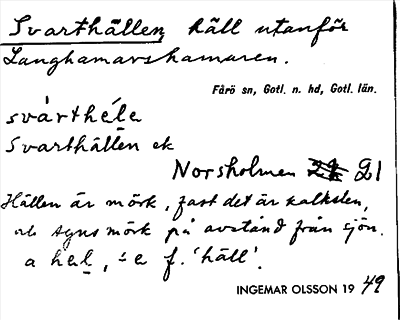 Svarthällen, häll utanför
Langhamarshamaren.
Fårö sn, Gotl. n. hd, Gotl. län.
svårthéle
Svarthällen ek
Norsholmen 21
Hällen är mörk, fast det är kalksten,
och synes mörk på avstånd från sjön.
a hel, -e f. 'häll'.
INGEMAR OLSSON 19 49